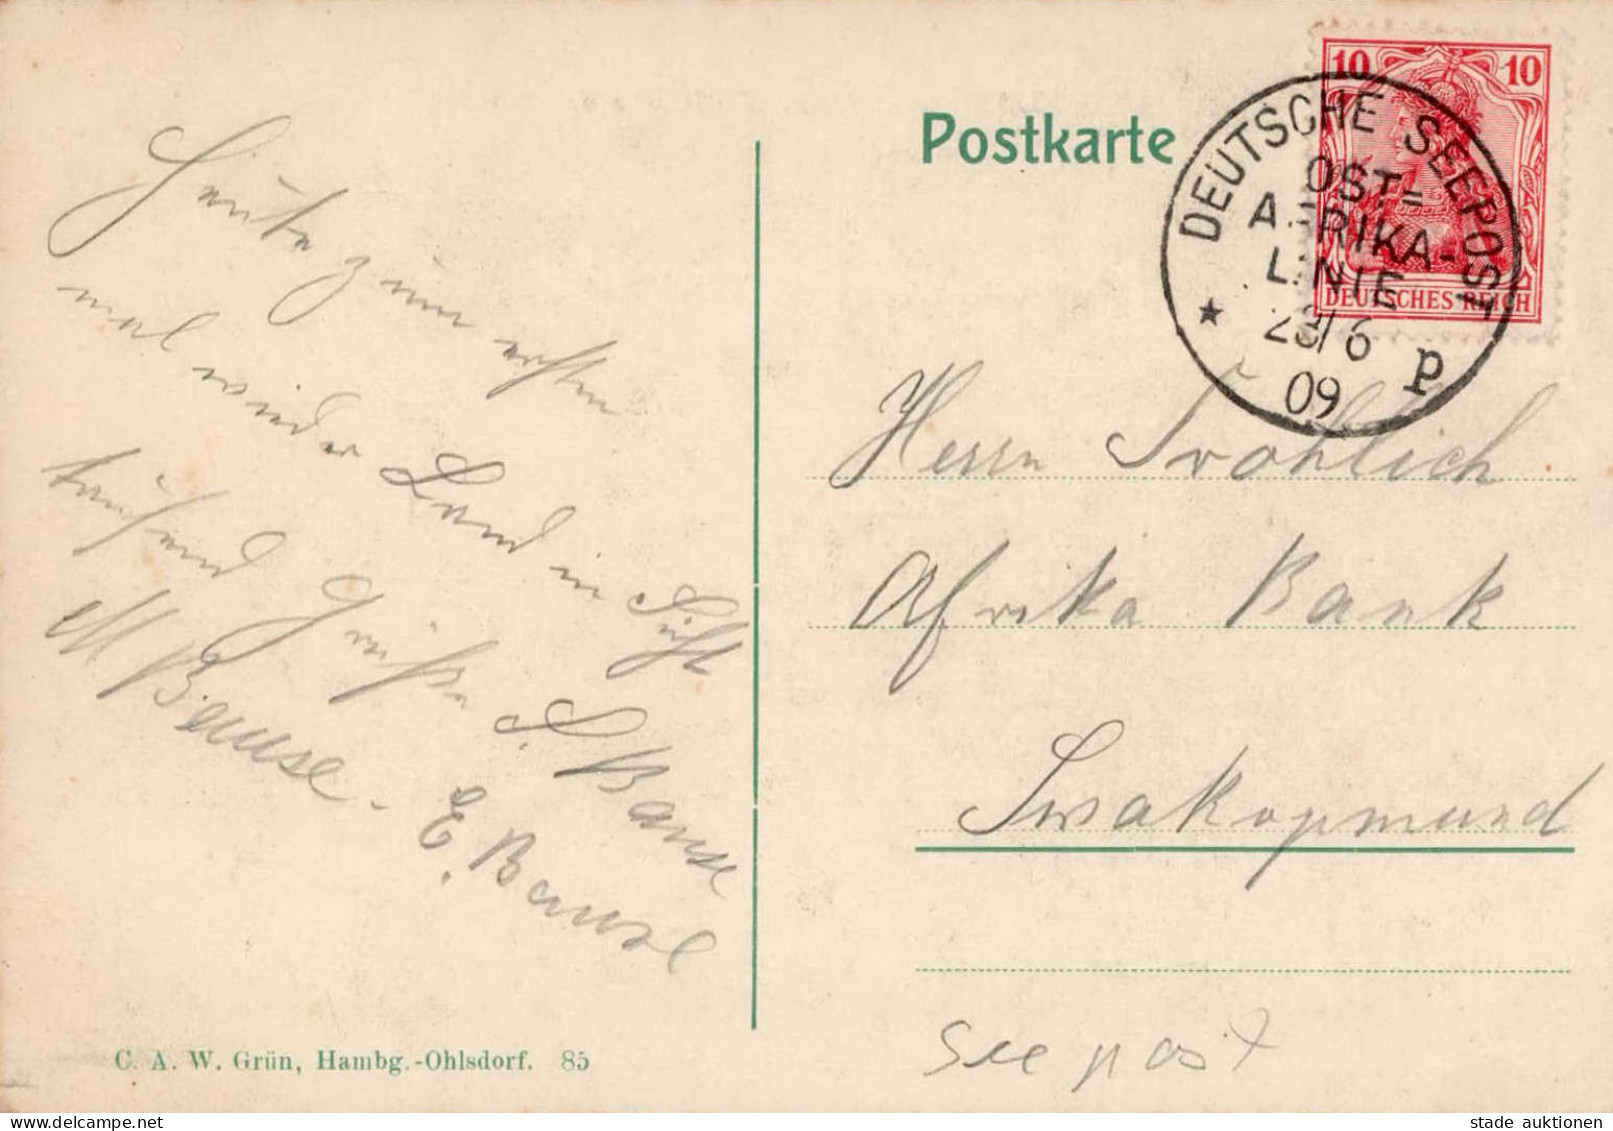 Heute zum ersten
mal wieder Land in Sicht
tausend Grüße S. Banse
M Banse. E. Banse
C. A. W. Grün, Hambg.-Ohlsdorf. 85
Postkarte
10 10
DEUTSCHES REICH
DEUTSCHE SEEPOST
OST=
AFRIKA-
LINIE
23/6
09
p
Herrn Fröhlich
Afrika Bank
Swakopmund
Seepost
stade auktionen